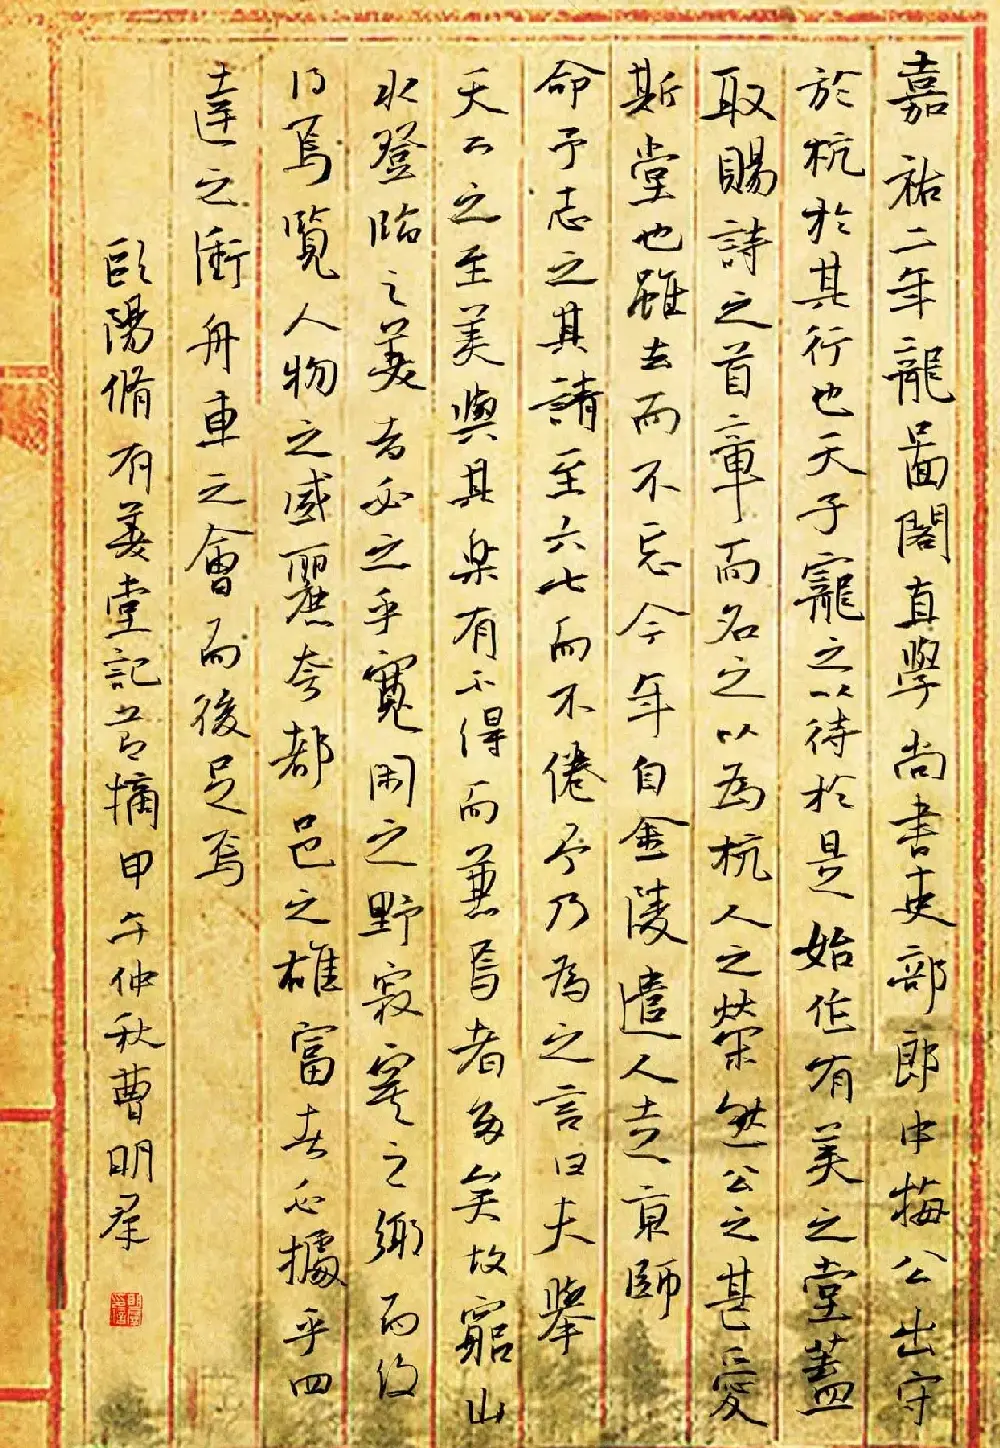 嘉祐二年龍圖閣直學尚書吏部郎中梅公出守
於杭於其行也天子寵之以待於是始作有美之堂蓋
取賜詩之首章而名之以為杭人之榮然公之甚愛
斯堂也雖去而不忘今年自金陵遣人走京師
命予志之其請至六七而不倦予乃為之言曰夫舉
天下之至美與其楽有不得而兼焉者多矣故窮山
水登臨之美者必之乎寬閑之野寂寞之鄉而後
得焉覽人物之盛麗夸都邑之雄富者必據乎四
達之衝舟車之會而後足焉
歐陽脩有美堂記节摘甲午仲秋曹明群